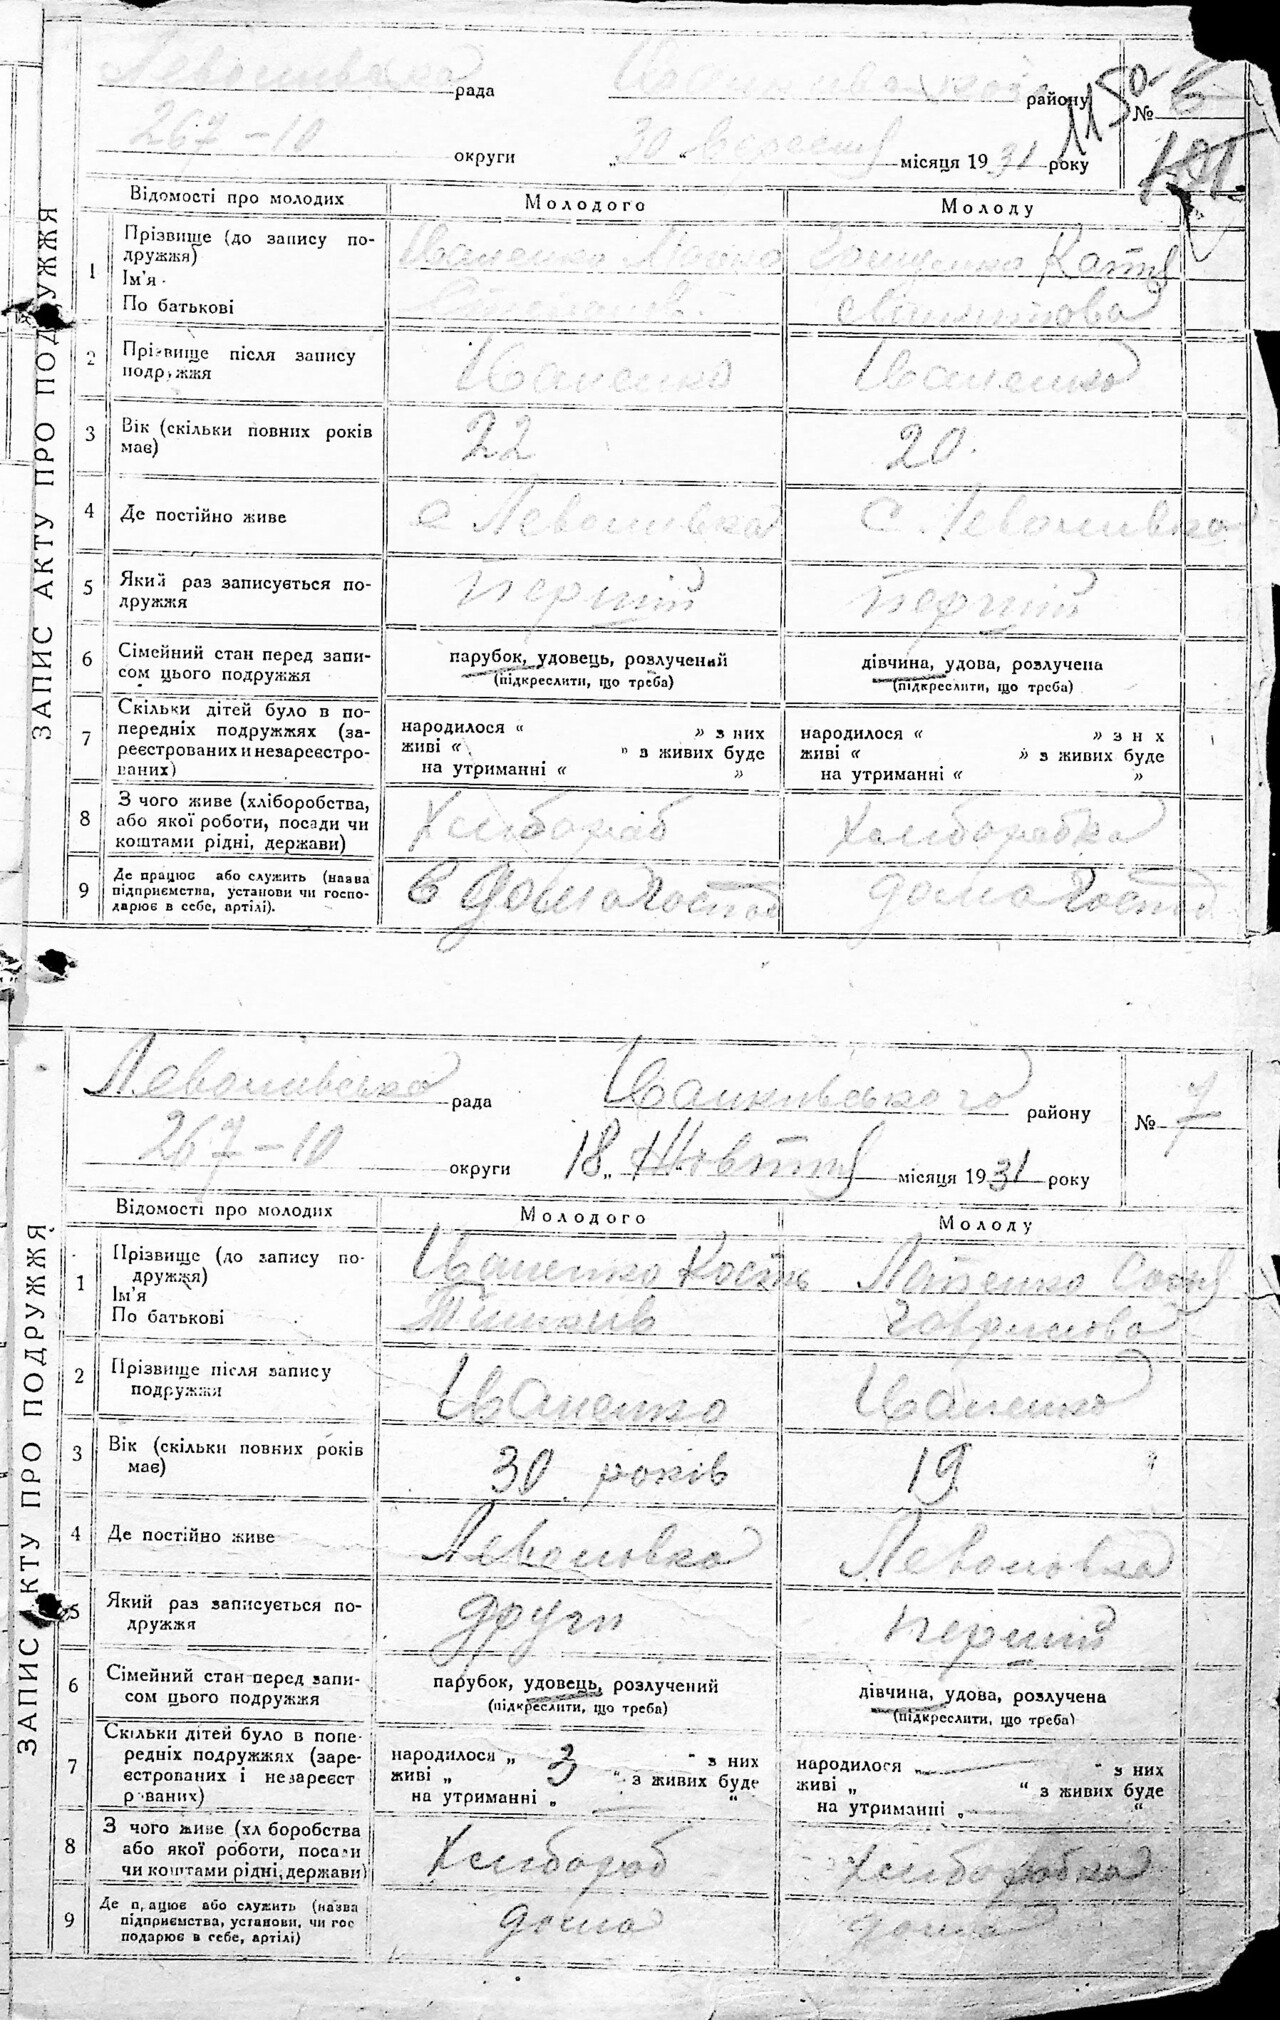 ЗАПИС АКТУ ПРО ПОДРУЖЖЯ
рада району №
267-10 округи „30“ вересня місяця 1931 року
1150
Відомості про молодих Молодого Молоду
1 Прізвище (до запису подружжя) Іваненко Катя
Ім'я
По батькові
2 Прізвище після запису подружжя Іваненко Іваненко
3 Вік (скільки повних років має) 22 20.
4 Де постійно живе с Леволивка с. Леволивка
5 Який раз записується подружжя Перший Перший
6 Сімейний стан перед записом цього подружжя парубок, удовець, розлучений дівчина, удова, розлучена
(підкреслити, що треба) (підкреслити, що треба)
7 Скільки дітей було в попередніх подружжях (зареєстрованих и незареєстрованих) народилося “ ” з них народилося “ ” з н х
живі “ ” з живих буде живі “ ” з живих буде
на утриманні “ ” на утриманні “ ”
8 З чого живе (хліборобства, або якої роботи, посади чи коштами рідні, держави) Хлибороб Хлиборобка
9 Де працює або служить (назва підприємства, установи чи господарює в себе, артілі). в домогоспод домогоспод
ЗАПИС АКТУ ПРО ПОДРУЖЖЯ
Леволивська рада Іванківського району № 7
267-10 округи 18„ Жовтня місяця 1931 року
Відомості про молодих Молодого Молоду
1 Прізвище (до запису подружжя) Іваненко Кость Лапенко
Ім'я
По батькові Гаврилова
2 Прізвище після запису подружжя Іваненко Іваненко
3 Вік (скільки повних років має) 30 років 19
4 Де постійно живе Леволовка Леволовка
5 Який раз записується подружжя други перший
6 Сімейний стан перед записом цього подружжя парубок, удовець, розлучений дівчина, удова, розлучена
(підкреслити, що треба) (підкреслити, що треба)
7 Скільки дітей було в попередніх подружжях (зареєстрованих і незареєст р ваних) народилося „ 3 “ з них народилося „ “ з них
живі „ “ з живих буде живі „ “ з живих буде
на утриманні „ “ на утриманні „ “
8 З чого живе (хл боробства або якої роботи, посади чи коштами рідні, держави) Хлибороб Хлиборобка
9 Де п, ацює або служить (назва підприємства, установи, чи гос подарює в себе, артілі) дома дома